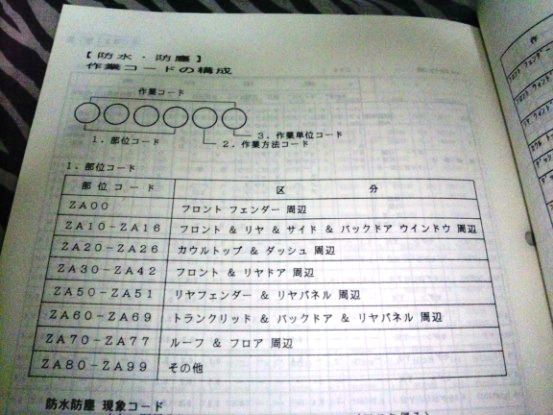 【防水・防塵】
作業コードの構成
作業コード
3．作業単位コード
1．部位コード
2．作業方法コード
1．部位コード
部位コード 区分
ZA00 フロント フェンダー 周辺
ZA10-ZA16 フロント & リヤ & サイド & バックドア ウインドウ 周辺
ZA20-ZA26 カウルトップ & ダッシュ 周辺
ZA30-ZA42 フロント & リヤドア 周辺
ZA50-ZA51 リヤフェンダー & リヤパネル 周辺
ZA60-ZA69 トランクリッド & バックドア & リヤパネル 周辺
ZA70-ZA77 ルーフ & フロア 周辺
ZA80-ZA99 その他
防水防塵 現象コード